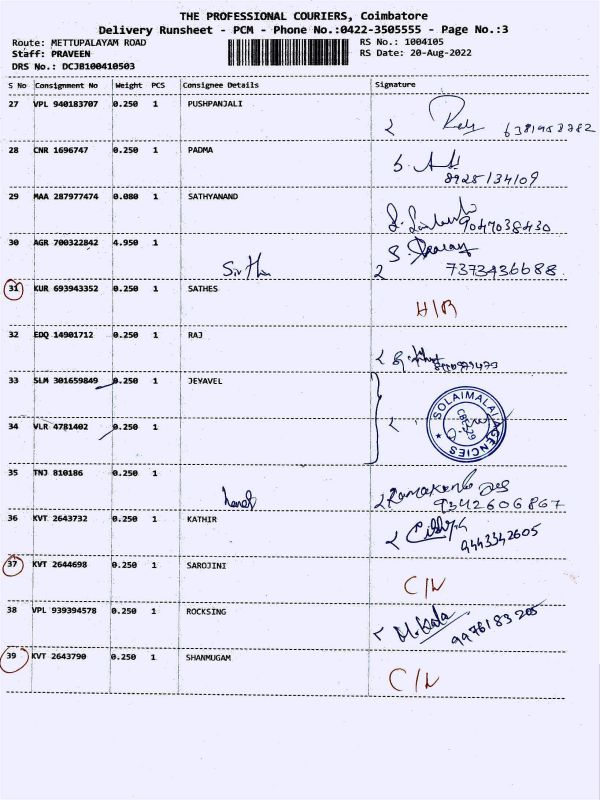 THE PROFESSIONAL COURIERS, Coimbatore
Delivery Runsheet - PCM - Phone No.:0422-3505555 - Page No.:3
Route: METTUPALAYAM ROAD RS No.: 1004105
Staff: PRAVEEN RS Date: 20-Aug-2022
DRS No.: DCJB100410503
S No Consignment No Weight PCS Consignee Details Signature
27 VPL 940183707 0.250 1 PUSHPANJALI
28 CNR 1696747 0.250 1 PADMA
8925134109
29 MAA 287977474 0.080 1 SATHYANAND
9047038430
30 AGR 700322842 4.950 1
7373436688
31 KUR 693943352 0.250 1 SATHES
32 EDQ 14901712 0.250 1 RAJ
33 SLM 301659849 0.250 1 JEYAVEL
SOLAIMALAI AGENCIES
34 VLR 4781402 0.250 1
35 TNJ 810186 0.250 1
9342606867
36 KVT 2643732 0.250 1 KATHIR
9443342605
37 KVT 2644698 0.250 1 SAROJINI
C/N
38 VPL 939394578 0.250 1 ROCKSING
M. Kala
39 KVT 2643790 0.250 1 SHANMUGAM
C/N